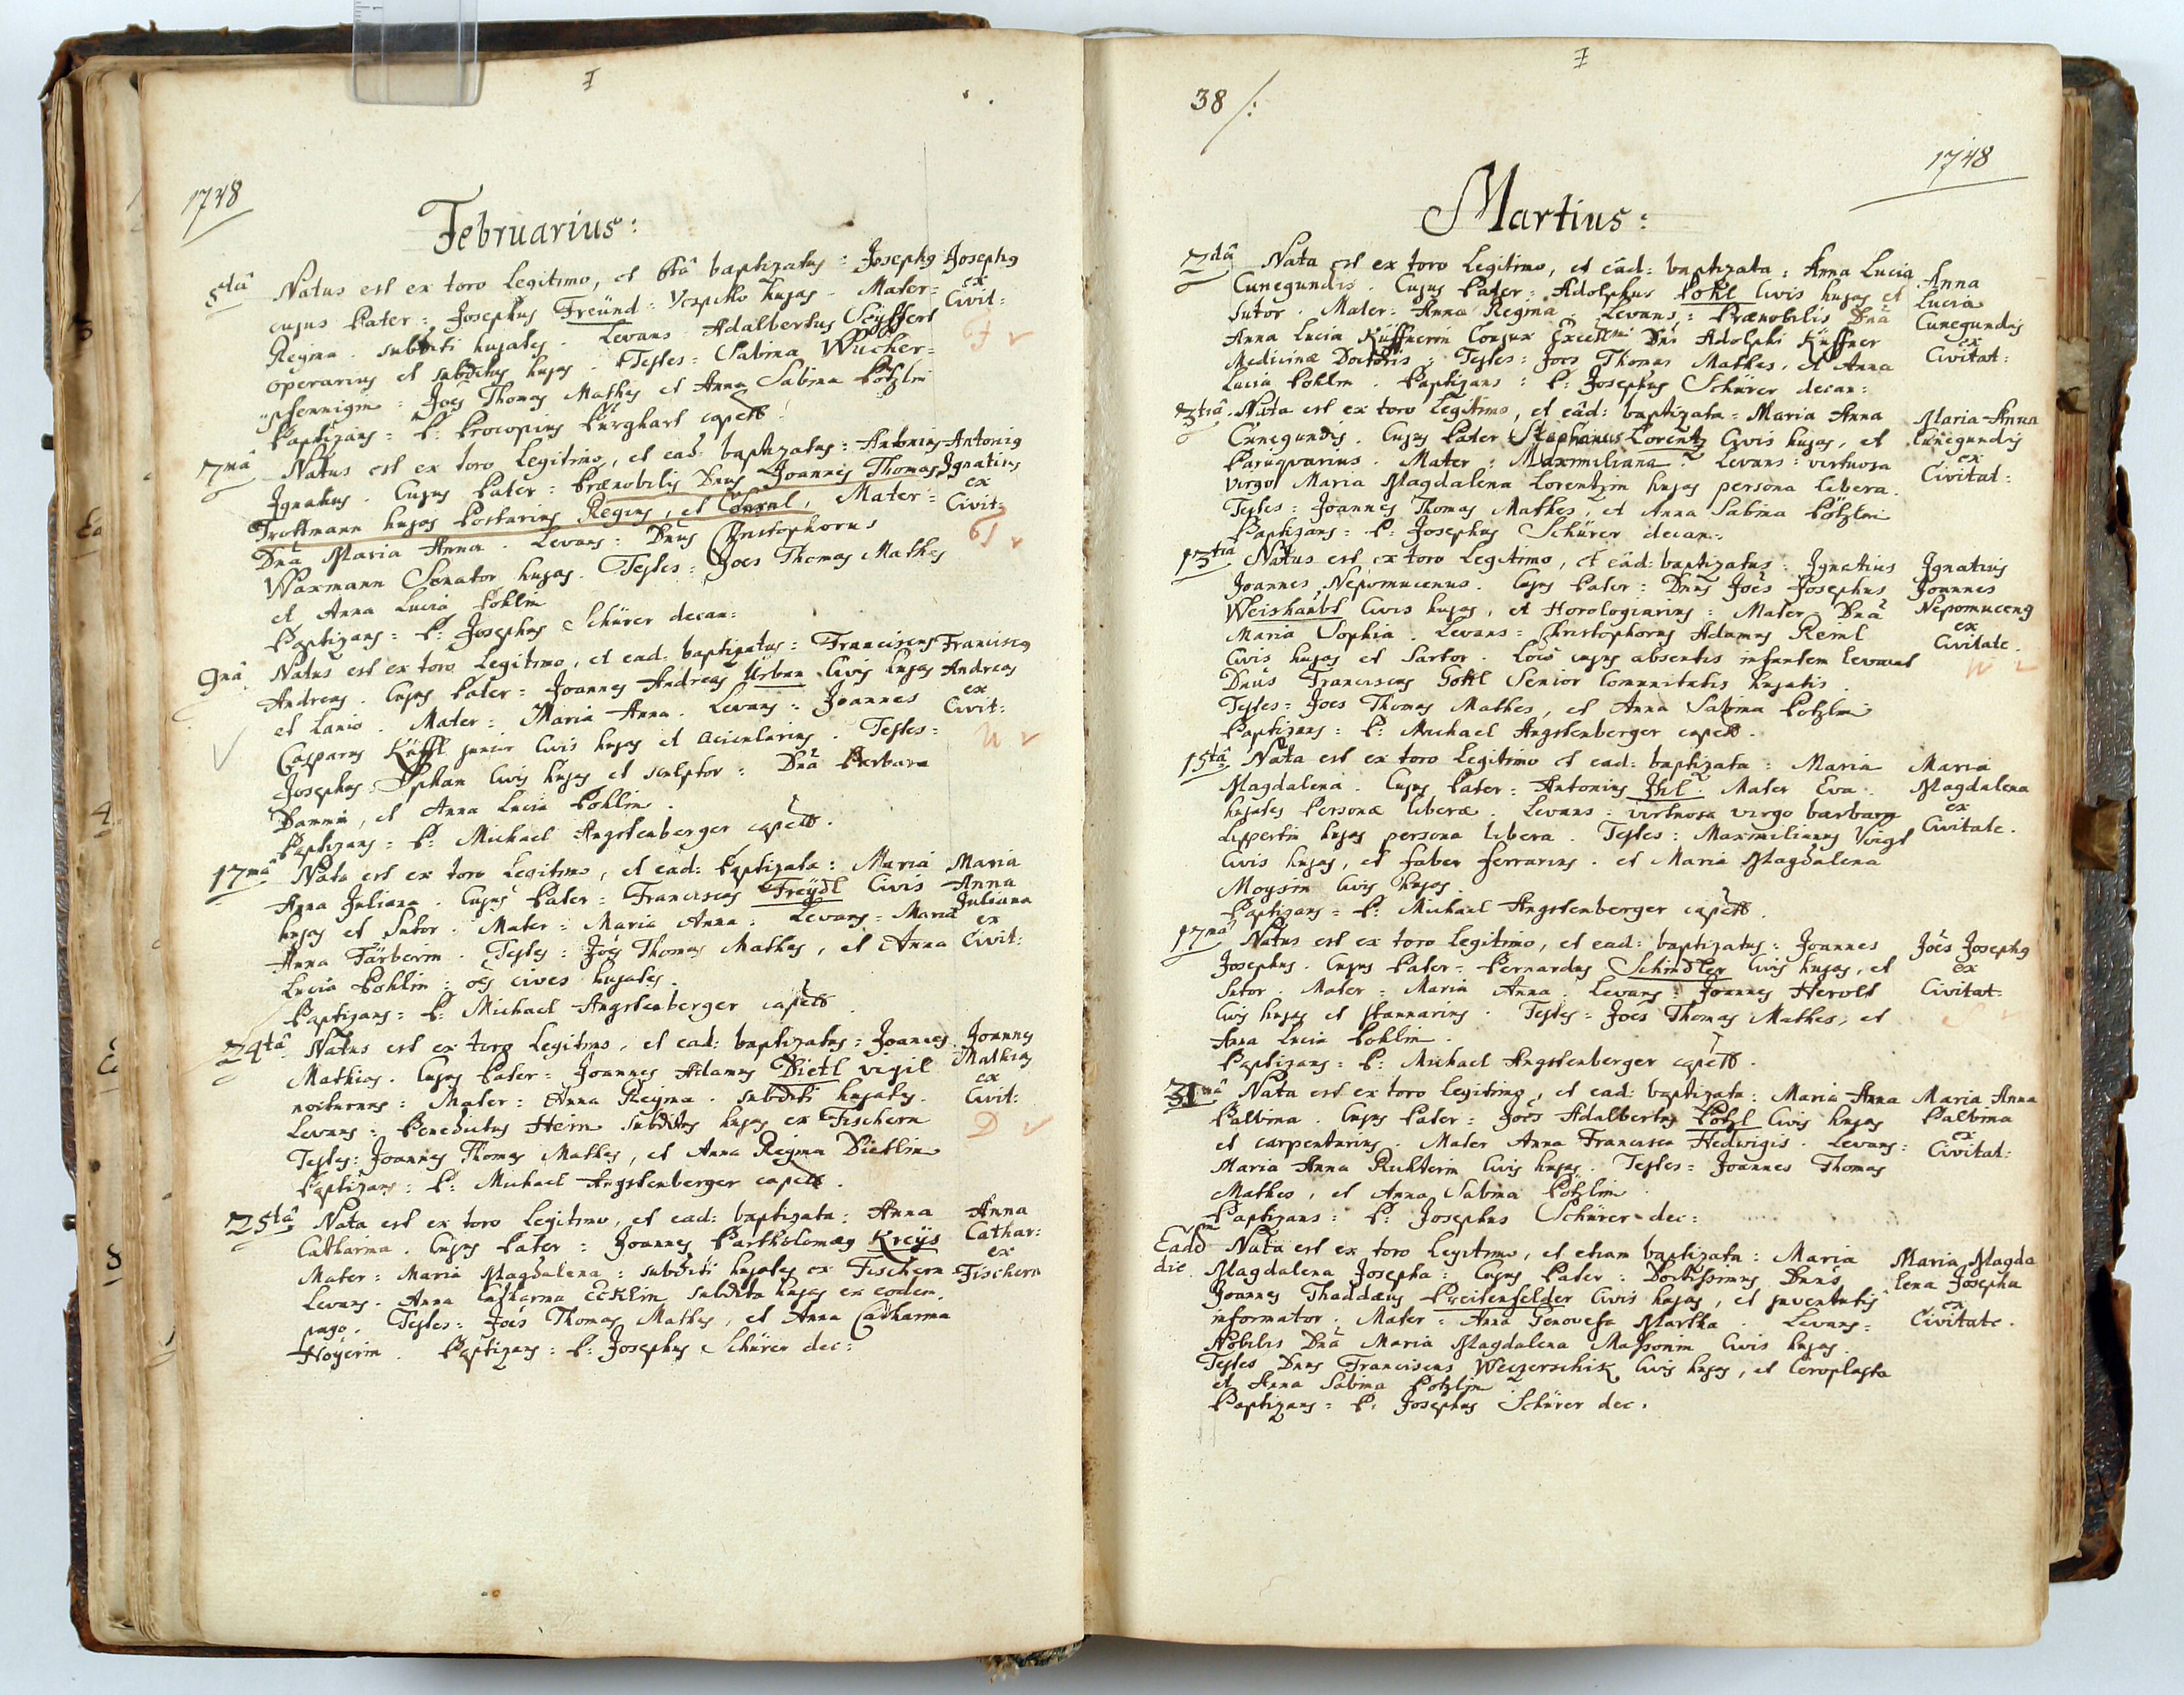 1748
Februarius:
5tâ Natus est ex toro Legitimo, et 6tâ baptizatus: Josephg Josephg
cujus Pater: Josephus Freünd: hujas. Mater= ex
Regina. subditi hujates. Levans Adalbertus Seyffert Civit:
operarius et subditus hujas. Testes: Sabina Wucher=
pfennigin: Joës Thomas Mathes et Anna Sabina Pötzlin
Baptizans: P: Procopius Pürghart capell.
7mâ Natus est ex toro Legitimo, et ead: baptizatus: Antonius Antonig
Ignatius. Cujus Pater: Prænobilis Dnus Joannes Thomas Ignatius
Trottmann hujas Postarius Regius, et Consul, Mater= ex Civit:
Dnâ Maria Anna. Levans: Dnus Christophorus
Waxmann Senator hujas. Testes: Joes Thomas Mathes
et Anna Lucia Pohlin
Baptizans: P: Josephus Schürer decan:
9nâ Natus est ex toro Legitimo, et ead: baptizatus: Franciscus Franciscg
Andreas. Cujus Pater: Joannes Andreas Urban Civis hujas Andreas
et Lanio. Mater: Maria Anna. Levans: Joannes ex
Casparus junior Civis hujas et acicularius. Testes= Civit:
Josephus Civis hujas et sculptor: Dnâ Barbara
et Anna Lucia Pohlin.
Baptizans: P: Michael Angstenberger capell.
17mâ Nata est ex toro Legitimo, et ead: baptizata: Maria Maria
Anna Juliana. Cujus Pater: Franciscus Freÿdl Civis Anna
hujas et Sutor. Mater: Maria Anna. Levans: Maria Juliana ex
Anna Färberin. Testes: Joës Thomas Mathes, et Anna Civit:
Lucia Pohlin: oës cives hujates.
Baptizans: P: Michael Angstenberger capell
24tâ Natus est ex toro Legitimo, et ead: baptizatus: Joannes Joannes
Mathias. Cujus Pater: Joannes Adamus Dietl vigil Mathias
nocturnus: Mater: Anna Regina. subditi hujates. ex Civit:
Levans: Benedictus Hein subditus hujas ex Fischern
Testes: Joannes Thomas Mathes, et Anna Regina Dietlin
Baptizans: P: Michael Angstenberger capell.
25tâ Nata est ex toro Legitimo, et ead: baptizata: Anna Anna
Catharina. Cujus Pater: Joannes Bartholomæg Kreÿs Cathar:
Mater: Maria Magdalena: subditi hujates ex Fischern ex Fischern
Levans. Anna Catharina Ecklin subdita hujas ex eodem
pago. Testes: Joës Thomas Mathes, et Anna Catharina
Höyerin. Baptizans: P: Josephus Schürer dec:
38/:
1748
Martius:
2dâ Nata est ex toro Legitimo, et eâd: baptizata: Anna Lucia Anna
Cunegundis. Cujus Pater: Adolphus Pohl Civis hujas et Lucia
Sutor. Mater: Anna Regina. Levans: Prænobilis Dnâ Cunegundis
Anna Lucia Küffnerin Conjux Excellmi Dni Adolphi Küffner ex
Medicinæ Doctoris: Testes: Joes Thomas Mathes, et Anna Civitat:
Lucia Pohlin. Baptizans: P: Josephus Schürer decan:
3tiâ. Nata est ex toro Legitimo, et eâd: baptizata: Maria Anna Maria Anna
Cunegundis. Cujus Pater Stephanus Lorentz Civis hujas, et Cunegundis
Paruquarius. Mater: Maxmiliana. Levans: virtuosa ex
virgo Maria Magdalena Lorentzin hujas persona libera. Civitat:
Testes: Joannes Thomas Mathes, et Anna Sabina Pötzlin
Baptizans: P: Josephus Schürer decan:.
13tiâ Natus est ex toro Legitimo, et eâd: baptizatus: Ignatius Ignatius
Joannes Nepomucenus. Cujus Pater: Dnus Joës Josephus Joannes
Weishaubt Civis hujas, et Horologiarius: Mater Dnâ Nepomuceng
Maria Sophia. Levans: Christophorus Adamus Reml ex
Civis hujas et Sartor. Loco cujus absentis infantem levavit Civitate.
Dnus Franciscus Gottl Senior Communitatis hujatis.
Testes: Joes Thomas Mathes, et Anna Sabina Pötzlin
Baptizans: P: Michael Angstenberger capell.
15tâ Nata est ex toro Legitimo et ead: baptizata: Maria Maria
Magdalena. Cujus Pater: Antonius Ihl. Mater Eva. Magdalena
hujates Personæ liberæ. Levans: virtuosa virgo barbara ex
Lippertin hujas persona libera. Testes: Maxmilianus Voigt Civitate.
Civis hujas, et faber ferrarius. et Maria Magdalena
Moysin Civis hujas.
Baptizans: P: Michael Angstenberger capell.
17mâ Natus est ex toro Legitimo, et ead: baptizatus: Joannes Joës Josephg
Josephus. Cujus Pater: Bernardus Schindler Civis hujas, et ex
Sutor. Mater: Maria Anna. Levans: Joannes Herolt Civitat:
Civis hujas et stannarius. Testes: Joës Thomas Mathes, et
Anna Lucia Pohlin.
Baptizans: P: Michael Angstenberger capell.
31mâ Nata est ex toro Legitimo, et ead: baptizata: Maria Anna Maria Anna
Balbina. Cujus Pater: Joës Adalbertus Pötzl Civis hujas Balbina
et carpentarius. Mater Anna Francisca Hedwigis. Levans: ex
Maria Anna Richterin Civis hujas. Testes: Joannes Thomas Civitat:
Mathes, et Anna Sabina Pötzlin.
Baptizans: P: Josephus Schürer dec:
Eadem Nata est ex toro Legitimo, et etiam baptizata: Maria Maria Magda
die. Magdalena Josepha: Cujus Pater: Doctissimus Dnus lena Josepha
Joannes Thaddæus Preitenfelder Civis hujas, et juventutis ex
informator. Mater: Anna Genovefa Martha. Levans: Civitate.
Nobilis Dnâ Maria Magdalena Massonin Civis hujas.
Testes Dnus Franciscus Weczerschik Civis hujas, et Ceroplasta
et Anna Sabina Potzlin
Baptizans: P: Josephus Schürer dec.